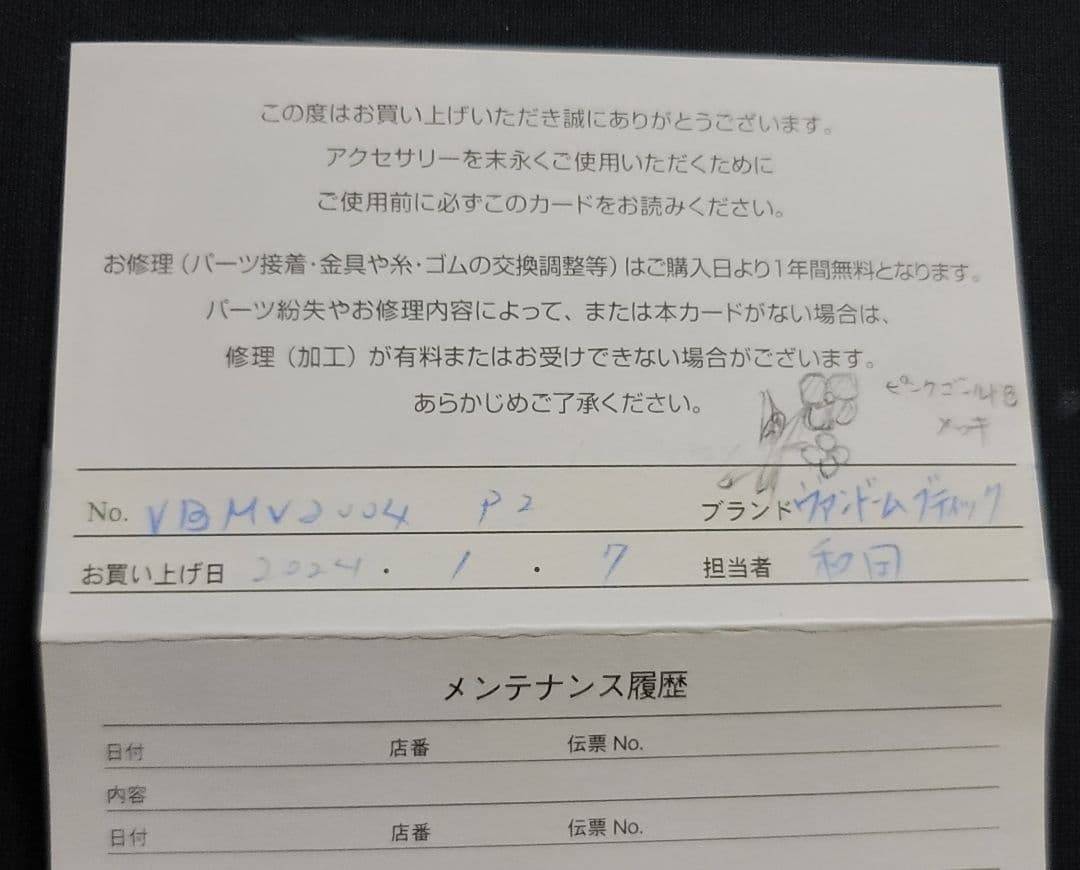 この度はお買い上げいただき誠にありがとうございます。
アクセサリーを末永くご使用いただくために
ご使用前に必ずこのカードをお読みください。
お修理（パーツ接着・金具や糸・ゴムの交換調整等）はご購入日より1年間無料となります。
パーツ紛失やお修理内容によって、または本カードがない場合は、
修理（加工）が有料またはお受けできない場合がございます。
あらかじめご了承ください。
ピンクゴールド色
メッキ
No. VBMV2004 P2 ブランド ヴァンドームブティック
お買い上げ日 2024・1・7 担当者 和田
メンテナンス履歴
日付 店番 伝票 No.
内容
日付 店番 伝票 No.